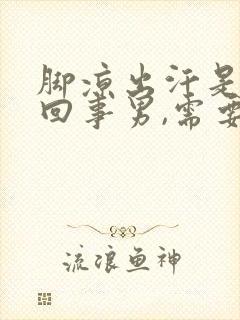 脚凉出汗是
回事男,需要
流浪鱼神